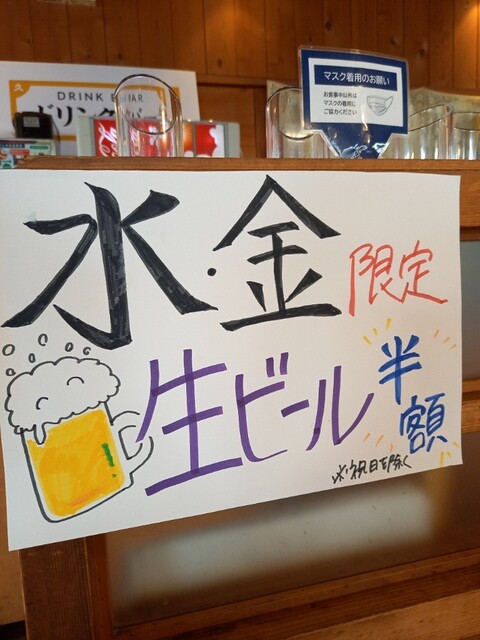 DRINK BAR
ドリンクバー
マスク着用のお願い
お食事中以外は
マスクの着用に
ご協力ください
水・金
限定
生ビール
半額
※祝日を除く